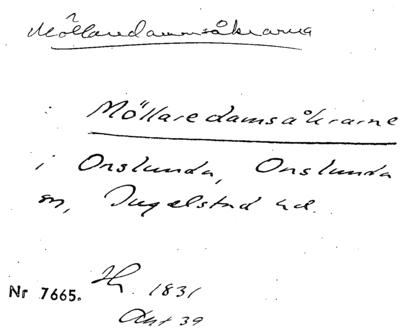 Möllaredammsåkrarna
: Möllaredamsåkrarne
i Onslunda, Onslunda
sn, Ingelstad hd.
Nr 7665. Hr. 1831
Akt 39